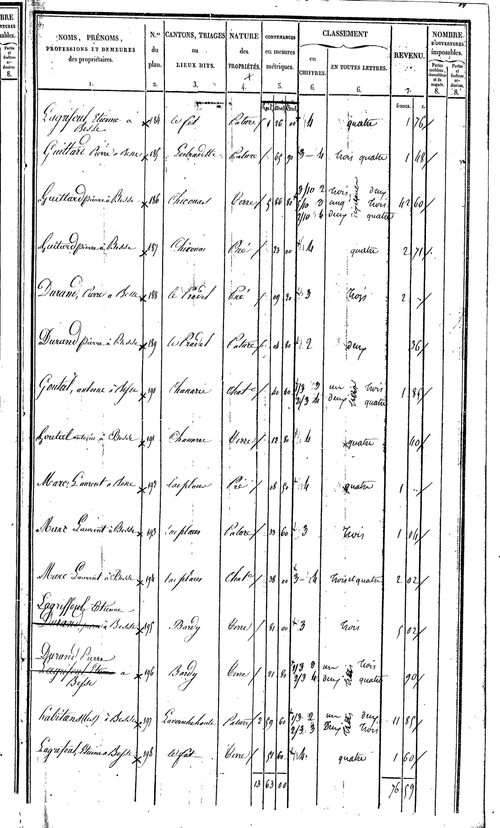 NOMS, PRÉNOMS,
PROFESSIONS ET DEMEURES
des propriétaires.
N.os
du
plan.
CANTONS, TRIAGES
ou
LIEUX DITS.
NATURE
des
PROPRIÉTÉS.
CONTENANCES
en mesures
métriques.
CLASSEMENT
en
CHIFFRES.
EN TOUTES LETTRES.
REVENU.
NOMBRE
D'OUVERTURES
imposables.
1. 2. 3. 4. 5. 6. 6. 7. 8. 8.
francs. c.
à Besse 184 le fat Pature 1 26 00 4 quatre 1 76
Guittard Pierre à Besse 185 Pature 65 90 3 - 4 trois quatre 1 48
Guittard pierre à Besse 186 Terre 5 86 80 3/10 2 trois deux 42 60
Guittard pierre à Besse 187 Pré 23 00 4 quatre 2 71
Durand, Pierre à Besse 188 le Pradel Pré 09 20 3 trois 2
Durand pierre à Besse 189 le Pradel Pature 04 80 2 deux 36
Goutal, antoine à Besse 190 Chanarre Chat.e 40 60 1/3 3 un trois 1 85
2/3 4 deux quatre
Goutal antoine à Besse 191 Chanarre Terre 12 80 4 quatre 40
Marc Laurent à Besse 192 las places Pré 08 50 4 quatre 1
Marc Laurent à Besse 193 las places Pature 33 60 3 trois 1 04
Marc Laurent à Besse 194 las places Chat.e 38 00 3 - 4 trois et quatre 2 02
Lagriffoul Etienne
Durand pierre à Besse 195 Bardy Terre 81 00 3 trois 5 02
Durand Pierre
Lagrifoul Etienne à 196 Bardy Terre 21 80 1/3 3 un trois 90
Besse 2/3 4 deux quatre
habitans (les) à Besse 197 Pature 2 59 60 1/3 2 un deux 11 85
2/3 3 deux trois
Lagrifoul, Etienne à Besse 198 le fat Terre 51 60 4 quatre 1 60
13 63 00 76 59